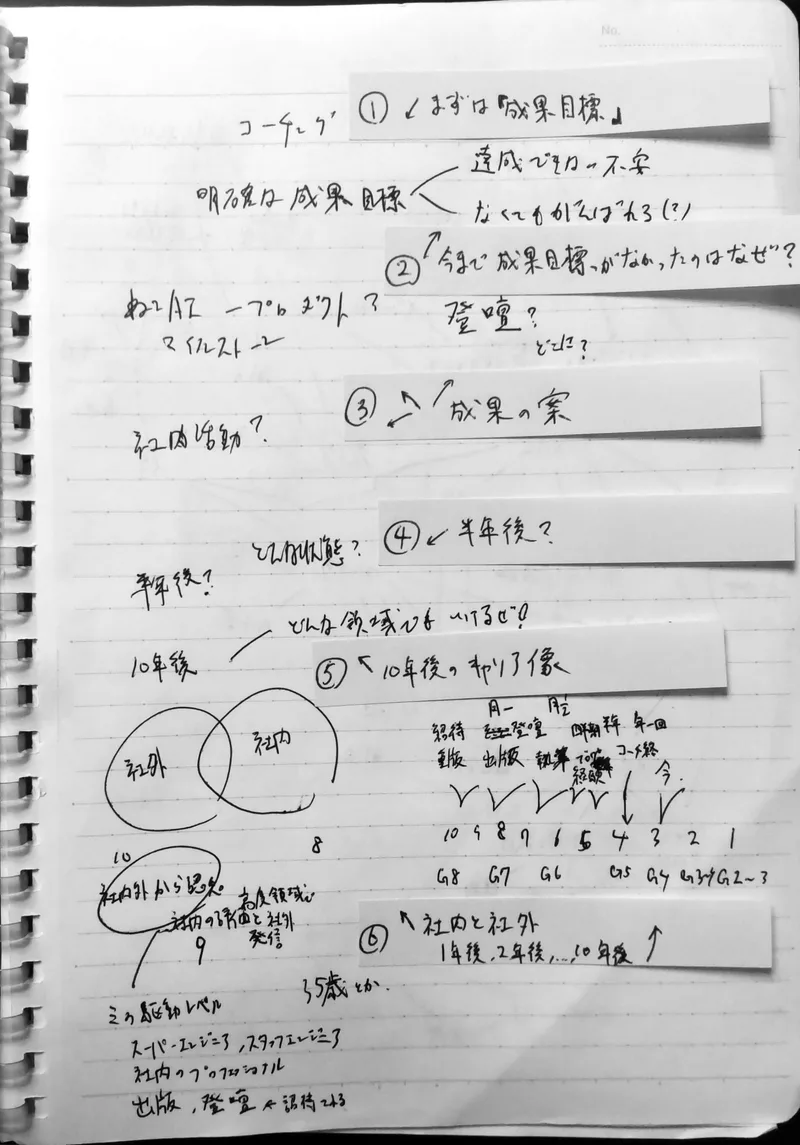 No.
① ↙ まずは「成果目標」
コーチング
達成できるかの不安
明確な成果目標
なくてもがんばれる(?)
② ↗ 今まで成果目標がなかったのはなぜ?
ねこAI 一プロダクト?
登壇?
マイルストーン
どこに?
③ ↖ ↙ ↗ 成果の案
社内活動?
④ ↙ 半年後?
どんな状態?
半年後?
どんな領域でもいけるぜ!
10年後
⑤ ↖ 10年後のキャリア像
月一
招待 登壇 四半期 半年 年一回
重版 出版 執筆 コーチ終
経験 今
社外 社内
10 9 8 7 6 5 4 3 2 1
G8 G7 G6 G5 G4 G3 G2~3
10 8
社内外から認知
高度領域
社内の 社外
発信
9
⑥ ↖ 社内と社外
1年後, 2年後, ..., 10年後 ↗
35歳とか.
駆動レベル
スーパーエンジニア, スタッフエンジニア
社内のプロフェッショナル
出版, 登壇 ← 招待される